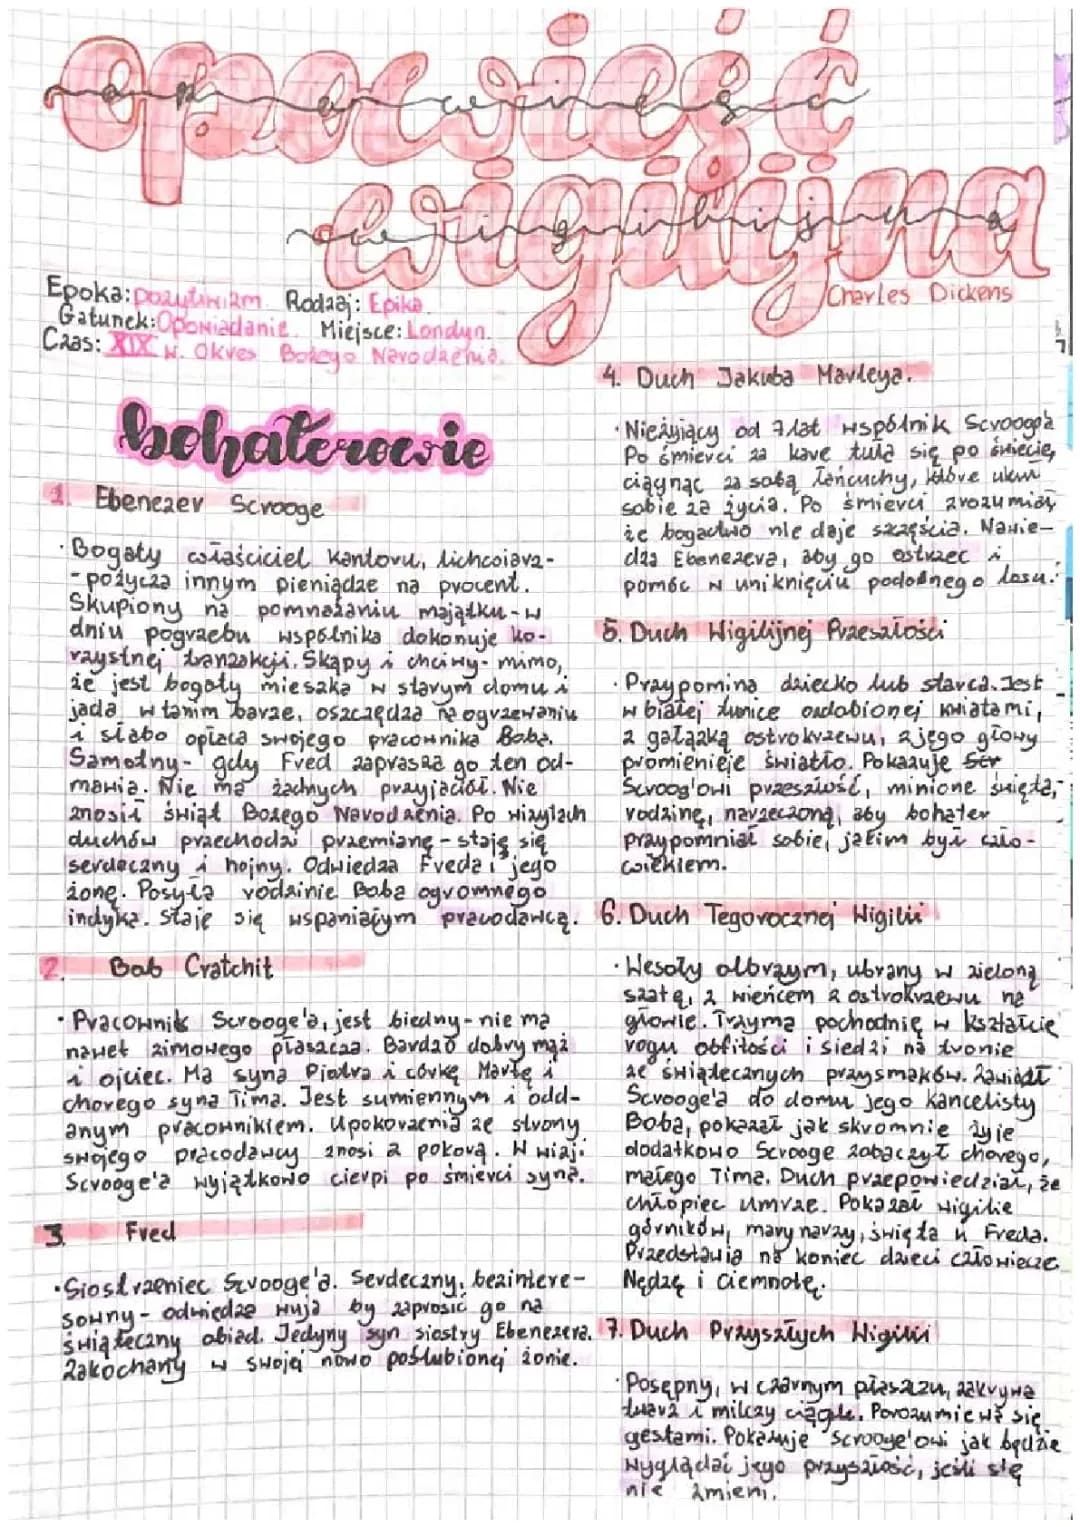 opowieść
wigilijna
Charles Dickens
Epoka: pozytiwizm. Rodzaj: Epika.
Gatunek: Opowiadanie. Miejsce: Londyn.
Czas: XIX w. Okres Bożego Narodzenia.
bohaterowie
1. Ebenezer Scrooge
· Bogaty właściciel kantoru, lichwiarz-
- pożycza innym pieniądze na procent.
Skupiony na pomnażaniu majątku - w
dniu pogrzebu wspólnika dokonuje ko-
rzystnej tranzakcji. Skąpy i chciwy - mimo,
że jest bogaty mieszka w starym domu i
jada w tanim barze, oszczędza na ogrzewaniu
i słabo opłaca swojego pracownika Boba.
Samotny - gdy Fred zaprasza go ten od-
mawia. Nie ma żadnych przyjaciół. Nie
znosił świąt Bożego Narodzenia. Po wizytach
duchów przechodzi przemianę - staje się
serdeczny i hojny. Odwiedza Freda i jego
żonę. Posyła rodzinie Boba ogromnego
indyka. Staje się wspaniałym pracodawcą.
2. Bob Cratchit
· Pracownik Scrooge'a, jest biedny - nie ma
nawet zimowego płaszcza. Bardzo dobry mąż
i ojciec. Ma syna Piotra i córkę Martę i
chorego syna Tima. Jest sumiennym i odd-
anym pracownikiem. Upokorzenia ze strony
swojego pracodawcy znosi z pokorą. W wizji
Scrooge'a wyjątkowo cierpi po śmierci syna.
3. Fred
· Siostrzeniec Scrooge'a. Serdeczny, bezintere-
sowny - odwiedza wuja by zaprosić go na
świąteczny obiad. Jedyny syn siostry Ebenezera.
Zakochany w swojej nowo poślubionej żonie.
4. Duch Jakuba Marleya.
· Nieżyjący od 7 lat wspólnik Scroog'a
Po śmierci za karę tuła się po świecie,
ciągnąc za sobą łańcuchy, które ukuł
sobie za życia. Po śmierci zrozumiał,
że bogactwo nie daje szczęścia. Nawie-
dza Ebenezera, aby go ostrzec i
pomóc w uniknięciu podobnego losu.
5. Duch Wigilijnej Przeszłości
· Przypomina dziecko lub starca. Jest
w białej tunice ozdobionej kwiatami,
z gałązką ostrokrzewu, z jego głowy
promienieje światło. Pokazuje
Scroog'owi przeszłość, minione święta,
rodzinę, narzeczoną, aby bohater
przypomniał sobie, jakim był czło-
wiekiem.
6. Duch Tegorocznej Wigilii
· Wesoły olbrzym, ubrany w zieloną
szatę, z wieńcem z ostrokrzewu na
głowie. Trzyma pochodnię w kształcie
rogu obfitości i siedzi na tronie
ze świątecznych przysmaków. Zawiódł
Scrooge'a do domu jego kancelisty
Boba, pokazał jak skromnie żyje
dodatkowo Scrooge zobaczył chorego,
małego Tima. Duch przepowiedział, że
chłopiec umrze. Pokazał wigilie
górników, marynarzy, święta u Freda.
Przedstawia na koniec dzieci człowiecze
Nędzę i Ciemnotę.
7. Duch Przyszłych Wigilii
· Posępny, w czarnym płaszczu, zakrywa
twarz i milczy ciągle. Porozumiewa się
gestami. Pokazuje Scrooge'owi jak będzie
wyglądać jego przyszłość, jeśli się
nie zmieni.